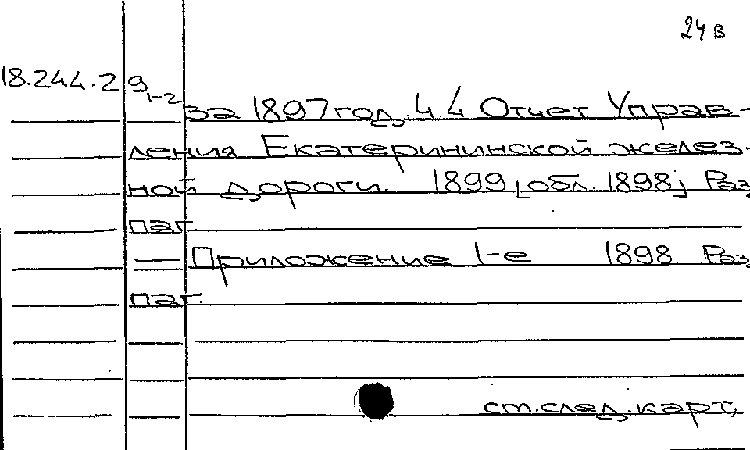 24 в
18.244.2 9 1-2 за 1897 год. Ч 4 Отчет Управ-
ления Екатерининской желез-
ной дороги. 1899 [обл. 1898] Раз
паг
— Приложение 1-е 1898 Раз.
паг.
см. след. карт.